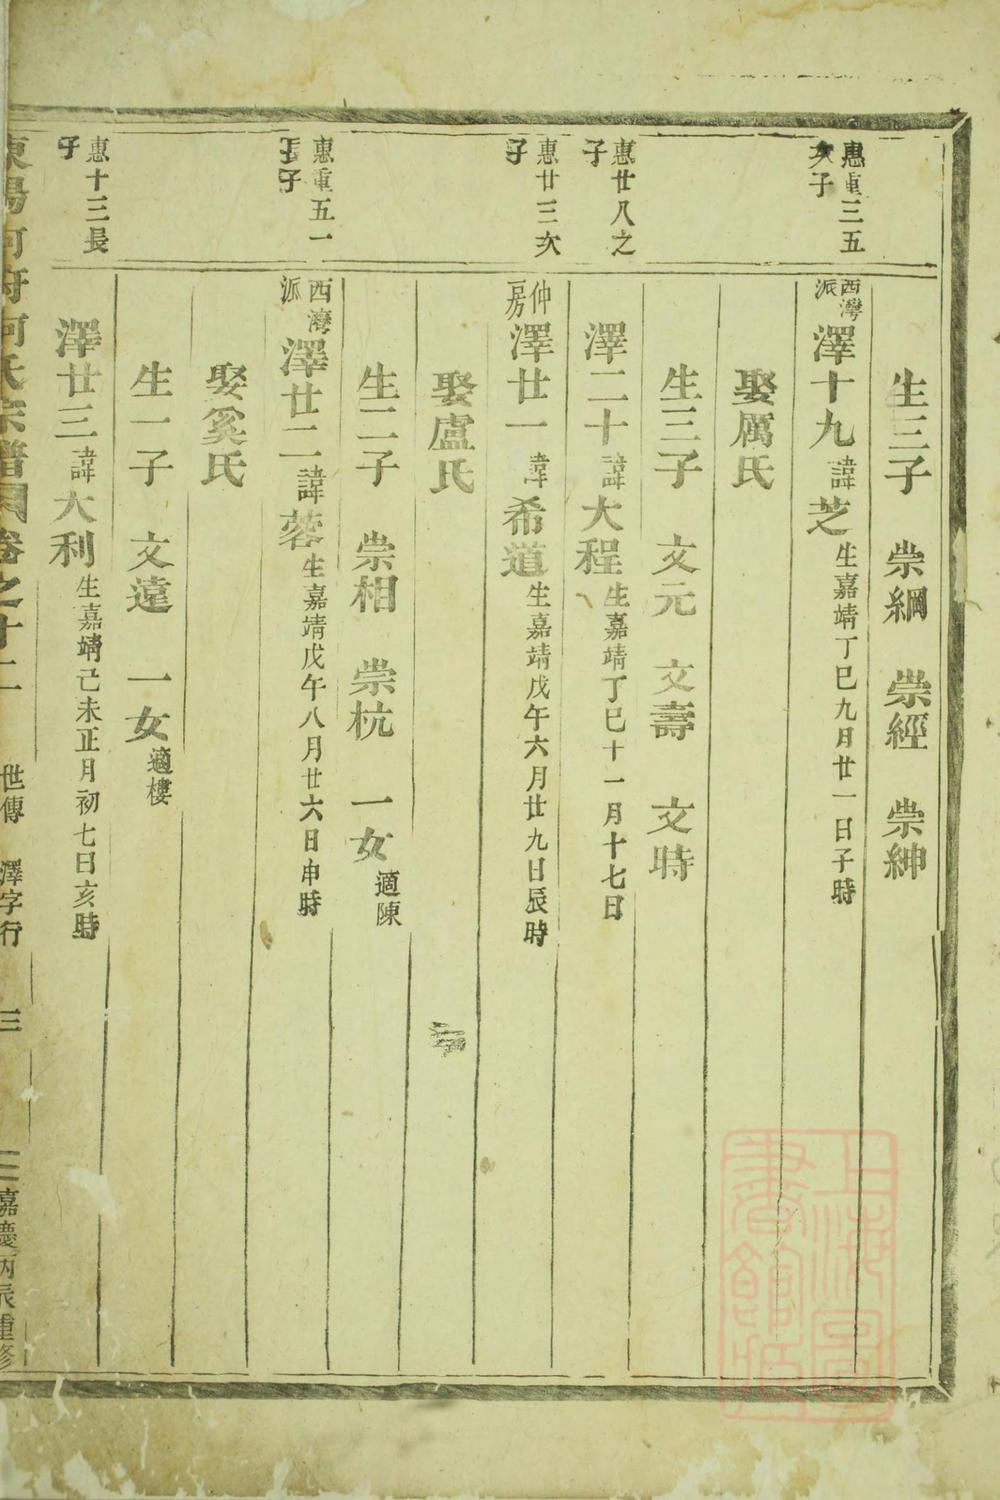 生三子 崇綱 崇經 崇紳
惠重三五
次子
西灣
派
澤十九 諱芝 生嘉靖丁巳九月廿一日子時
娶厲氏
生三子 文元 文壽 文時
惠廿八之
子
澤二十 諱大程 生嘉靖丁巳十一月十七日
惠廿三次
子
仲
房
澤廿一 諱希道 生嘉靖戊午六月廿九日辰時
娶盧氏
生二子 崇相 崇杭 一女 適陳
惠重五一
西灣
派
澤廿二 諱蓉 生嘉靖戊午八月廿六日申時
娶奚氏
生一子 文遠 一女 適樓
惠十三長
子
澤廿三 諱大利 生嘉靖己未正月初七日亥時
東陽何府何氏宗譜 卷之十二 世傳 澤字行 三 嘉慶丙辰重修
上海圖
書館藏